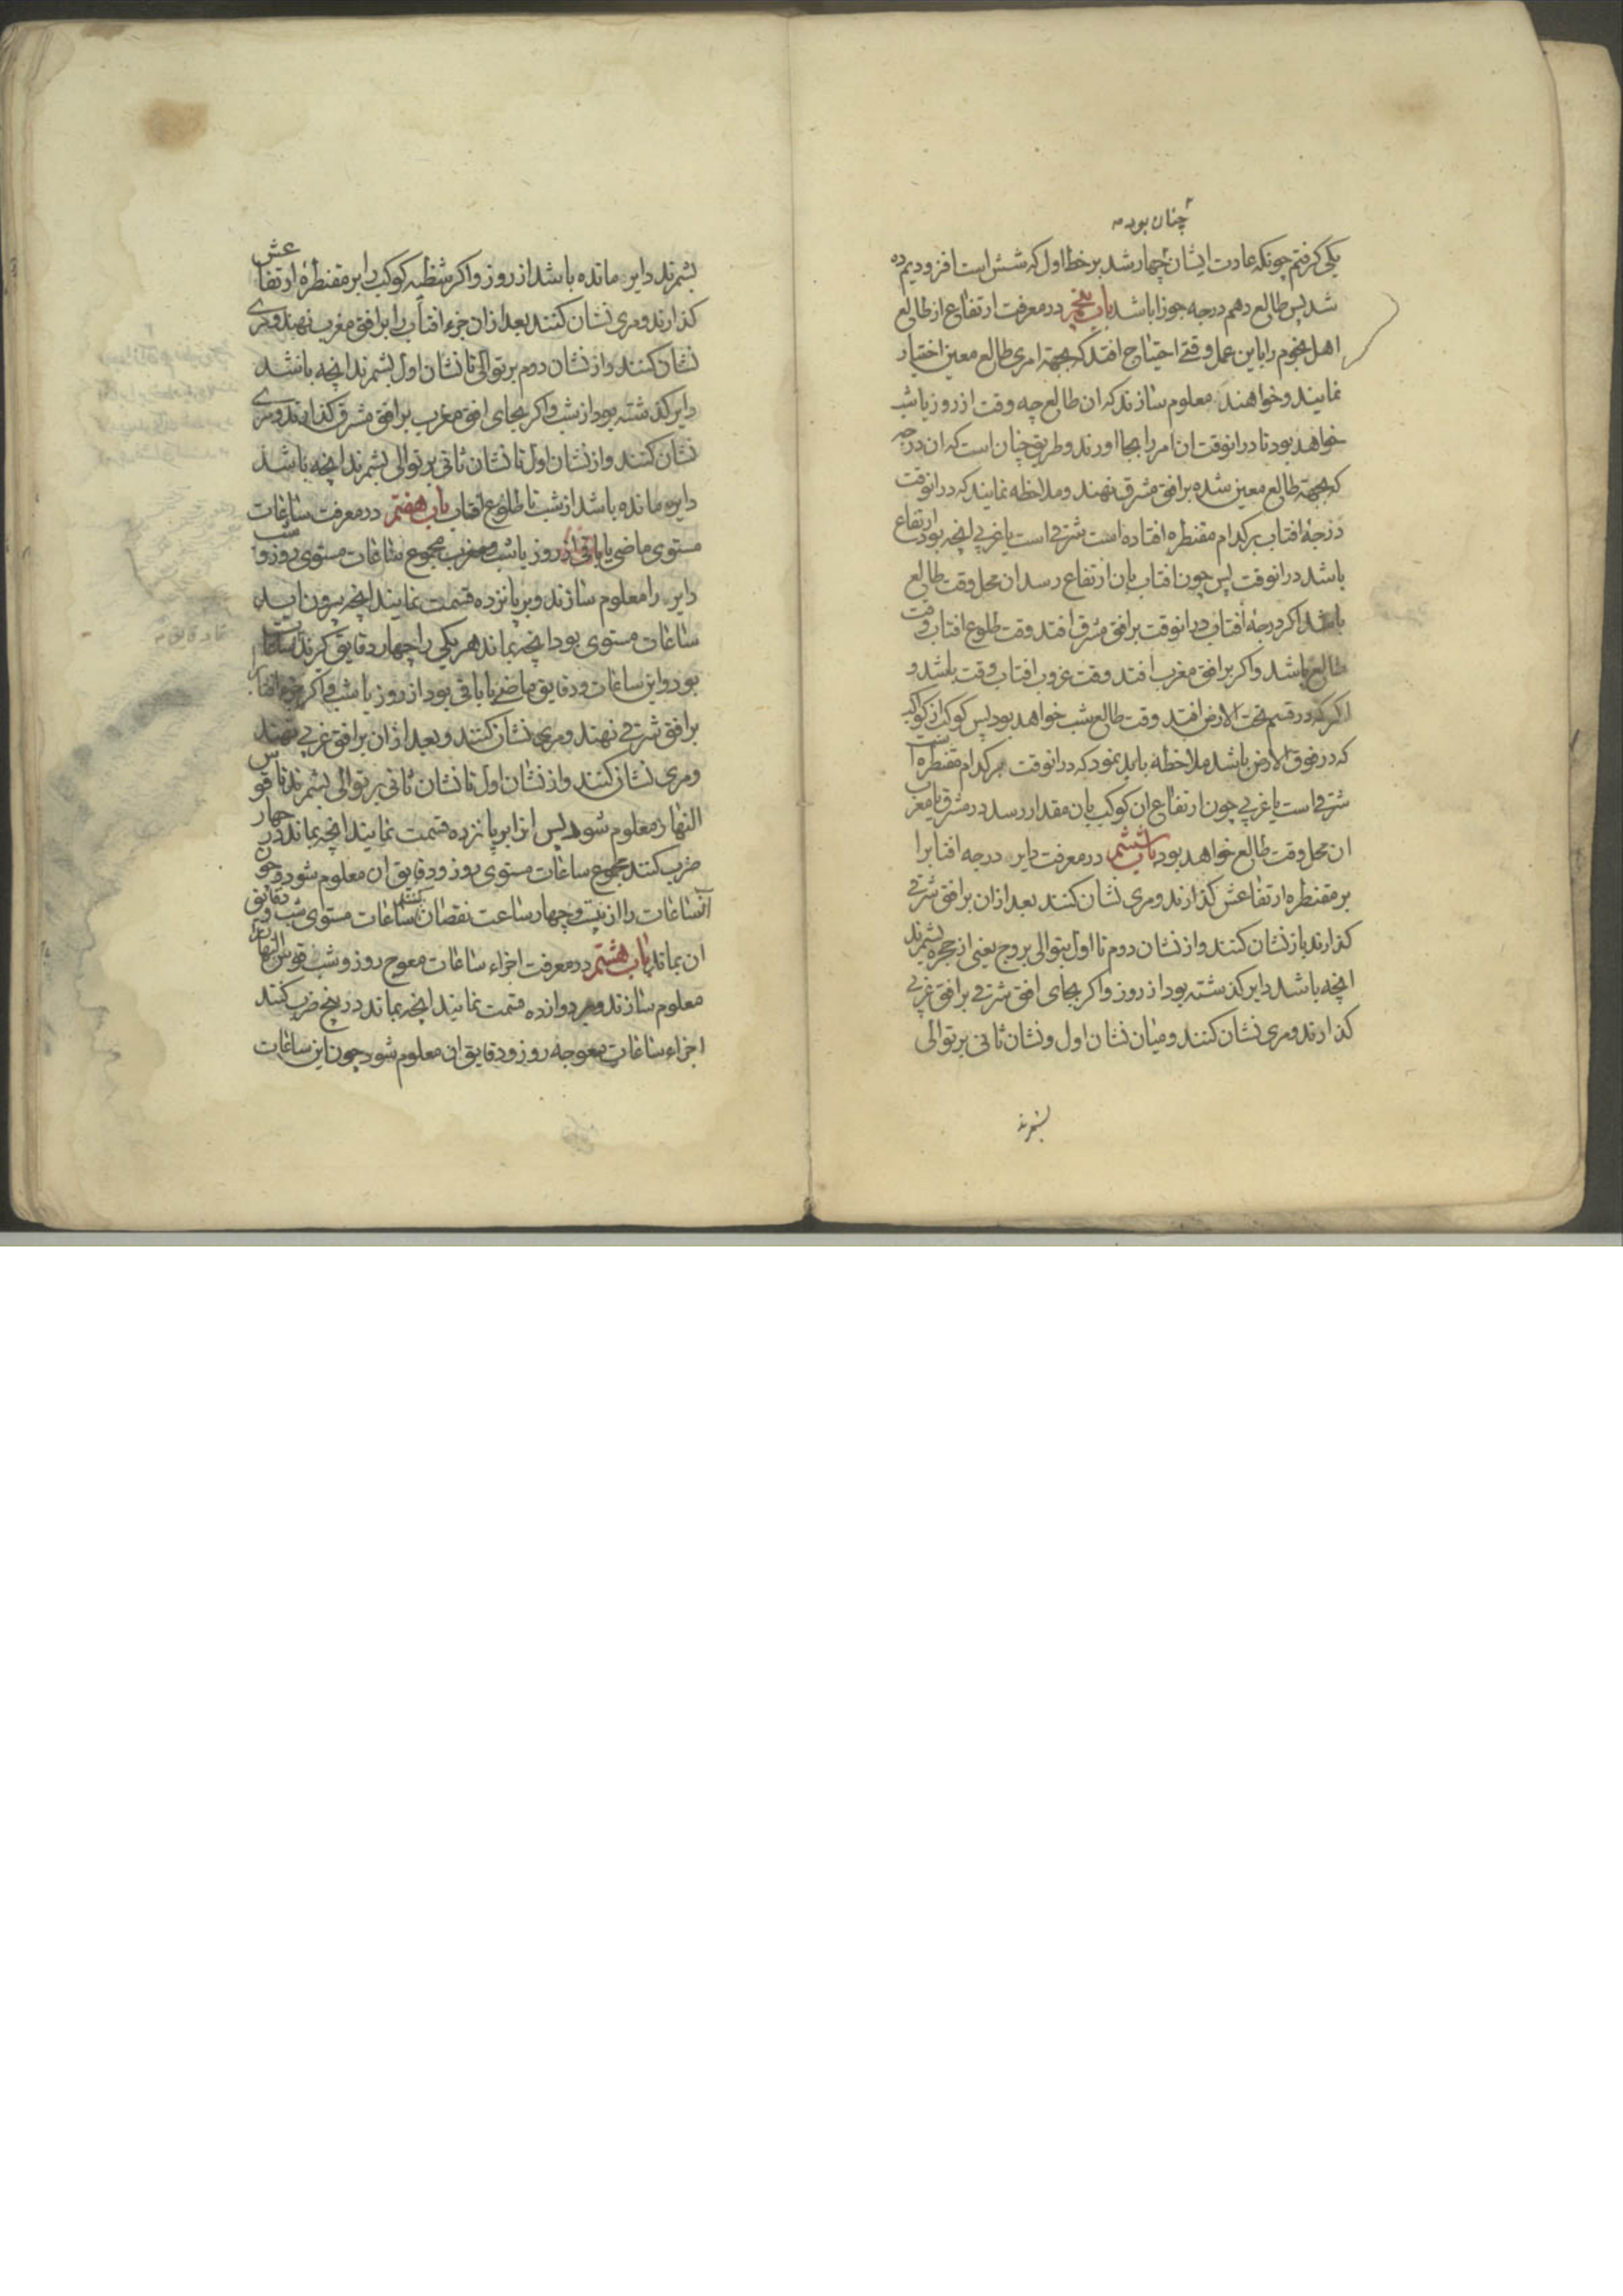 چنان بود
یکی کرفتم چونکه عادت ایشان چهار شد بر خط اول که شش است افزودیم ده
شد پس طالع دهم درجه جوزا باشد باب پنجم در معرفت ارتفاع از طالع
اهل نجوم را باین عمل وقتی احتیاج افتد که بجهة امری طالع معین اختیار
نمایند و خواهند معلوم سازند که ان طالع چه وقت از روز یا شب
خواهد بود تا در انوقت ان امر را بجا اورند و طریق چنان است که ان درجه
که بجهة طالع معین شده بر افق مشرق نهند و ملاحظه نمایند که در انوقت
درجهٔ افتاب بر کدام مقنطره افتاده است شرقی است یا غربی انچه بود ارتفاع
باشد در انوقت پس چون افتاب بان ارتفاع رسد ان محل وقت طالع
باشد اکر درجهٔ افتاب در انوقت بر افق مشرق افتد وقت طلوع افتاب وقت
طالع باشد و اکر بر افق مغرب افتد وقت غروب افتاب وقت باشد و
اکر که در قسم تحت الارض افتد وقت طالع شب خواهد بود پس کوکبی از کواکب
که در فوق الارض باشد ملاحظه باید نمود که در انوقت بر کدام مقنطره است
شرقی است یا غربی چون ارتفاع ان کوکب بان مقدار رسد در مشرق یا مغرب
ان محل وقت طالع خواهد بود باب ششم در معرفت دایر درجه افتابرا
بر مقنطره ارتفاعش کذارند و مری نشان کنند بعد از ان بر افق شرقی
کذارند باز نشان کنند و از نشان دوم تا اول بتوالی بروج یعنی از حجره بشمرند
انچه باشد دایر کذشته بود از روز و اکر بجای افق شرقی بر افق غربی
کذارند و مری نشان کنند و میان نشان اول و نشان ثانی بر توالی
بشمرند
بشمرند دایر مانده باشد از روز و اکر شظیه کوکب را بر مقنطرهٔ ارتفاعش
کذارند و مری نشان کنند بعد از ان جزء افتاب را بر افق مغرب نهند و مری
نشان کنند و از نشان دوم بر توالی تا نشان اول بشمرند انچه باشد
دایر کذشته بود از شب و اکر بجای افق مغرب بر افق مشرق کذارند و مری
نشان کنند و از نشان اول تا نشان ثانی بر توالی بشمرند انچه باشد
دایره مانده باشد از شب تا طلوع افتاب باب هفتم در معرفت ساعات
مستوی ماضی یا باقی از روز یا شب و معرفت مجموع ساعات مستوی روز و شب
دایر را معلوم سازند و بر پانزده قسمت نمایند انچه بیرون اید
ساعات مستوی بود انچه بماند هر یکی را چهار دقایق کرند ساعات
بود و این ساعات و دقایق ماضی یا باقی بود از روز یا شب و اکر جزء افتاب
بر افق شرقی نهند و مری نشان کنند و بعد از ان بر افق غربی نهند
و مری نشان کنند و از نشان اول تا نشان ثانی بر توالی بشمرند تا قوس
النهار معلوم شود پس انرا بر پانزده قسمت نمایند انچه بماند در چهار
ضرب کنند مجموع ساعات مستوی روز و دقایق ان معلوم شود و چون
آنساعات را از بیست و چهار ساعت نقصان کنند ساعات مستوی شب و دقایق
ان بماند باب هشتم در معرفت اجزاء ساعات معوج روز و شب قوس النهار
معلوم سازند و بر دوازده قسمت نمایند انچه بماند در پنج ضرب کنند
اجزاء ساعات معوجه روز و دقایق ان معلوم شود چون این ساعات